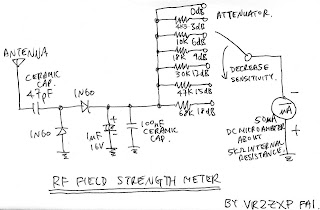 ANTENNA
CERAMIC
CAP.
47pF
1N60
1N60
1µF
16V
100nF
CERAMIC
CAP.
0dB
3dB
10K 6dB
18K 9dB
30K 12dB
47K 15dB
68K 18dB
ATTENUATOR.
DECREASE
SENSITIVITY.
µA
+
50µA
DC MICROAMMETER
ABOUT
INTERNAL
RESISTANCE.
RF FIELD STRENGTH METER
BY VR2ZXP FAI.